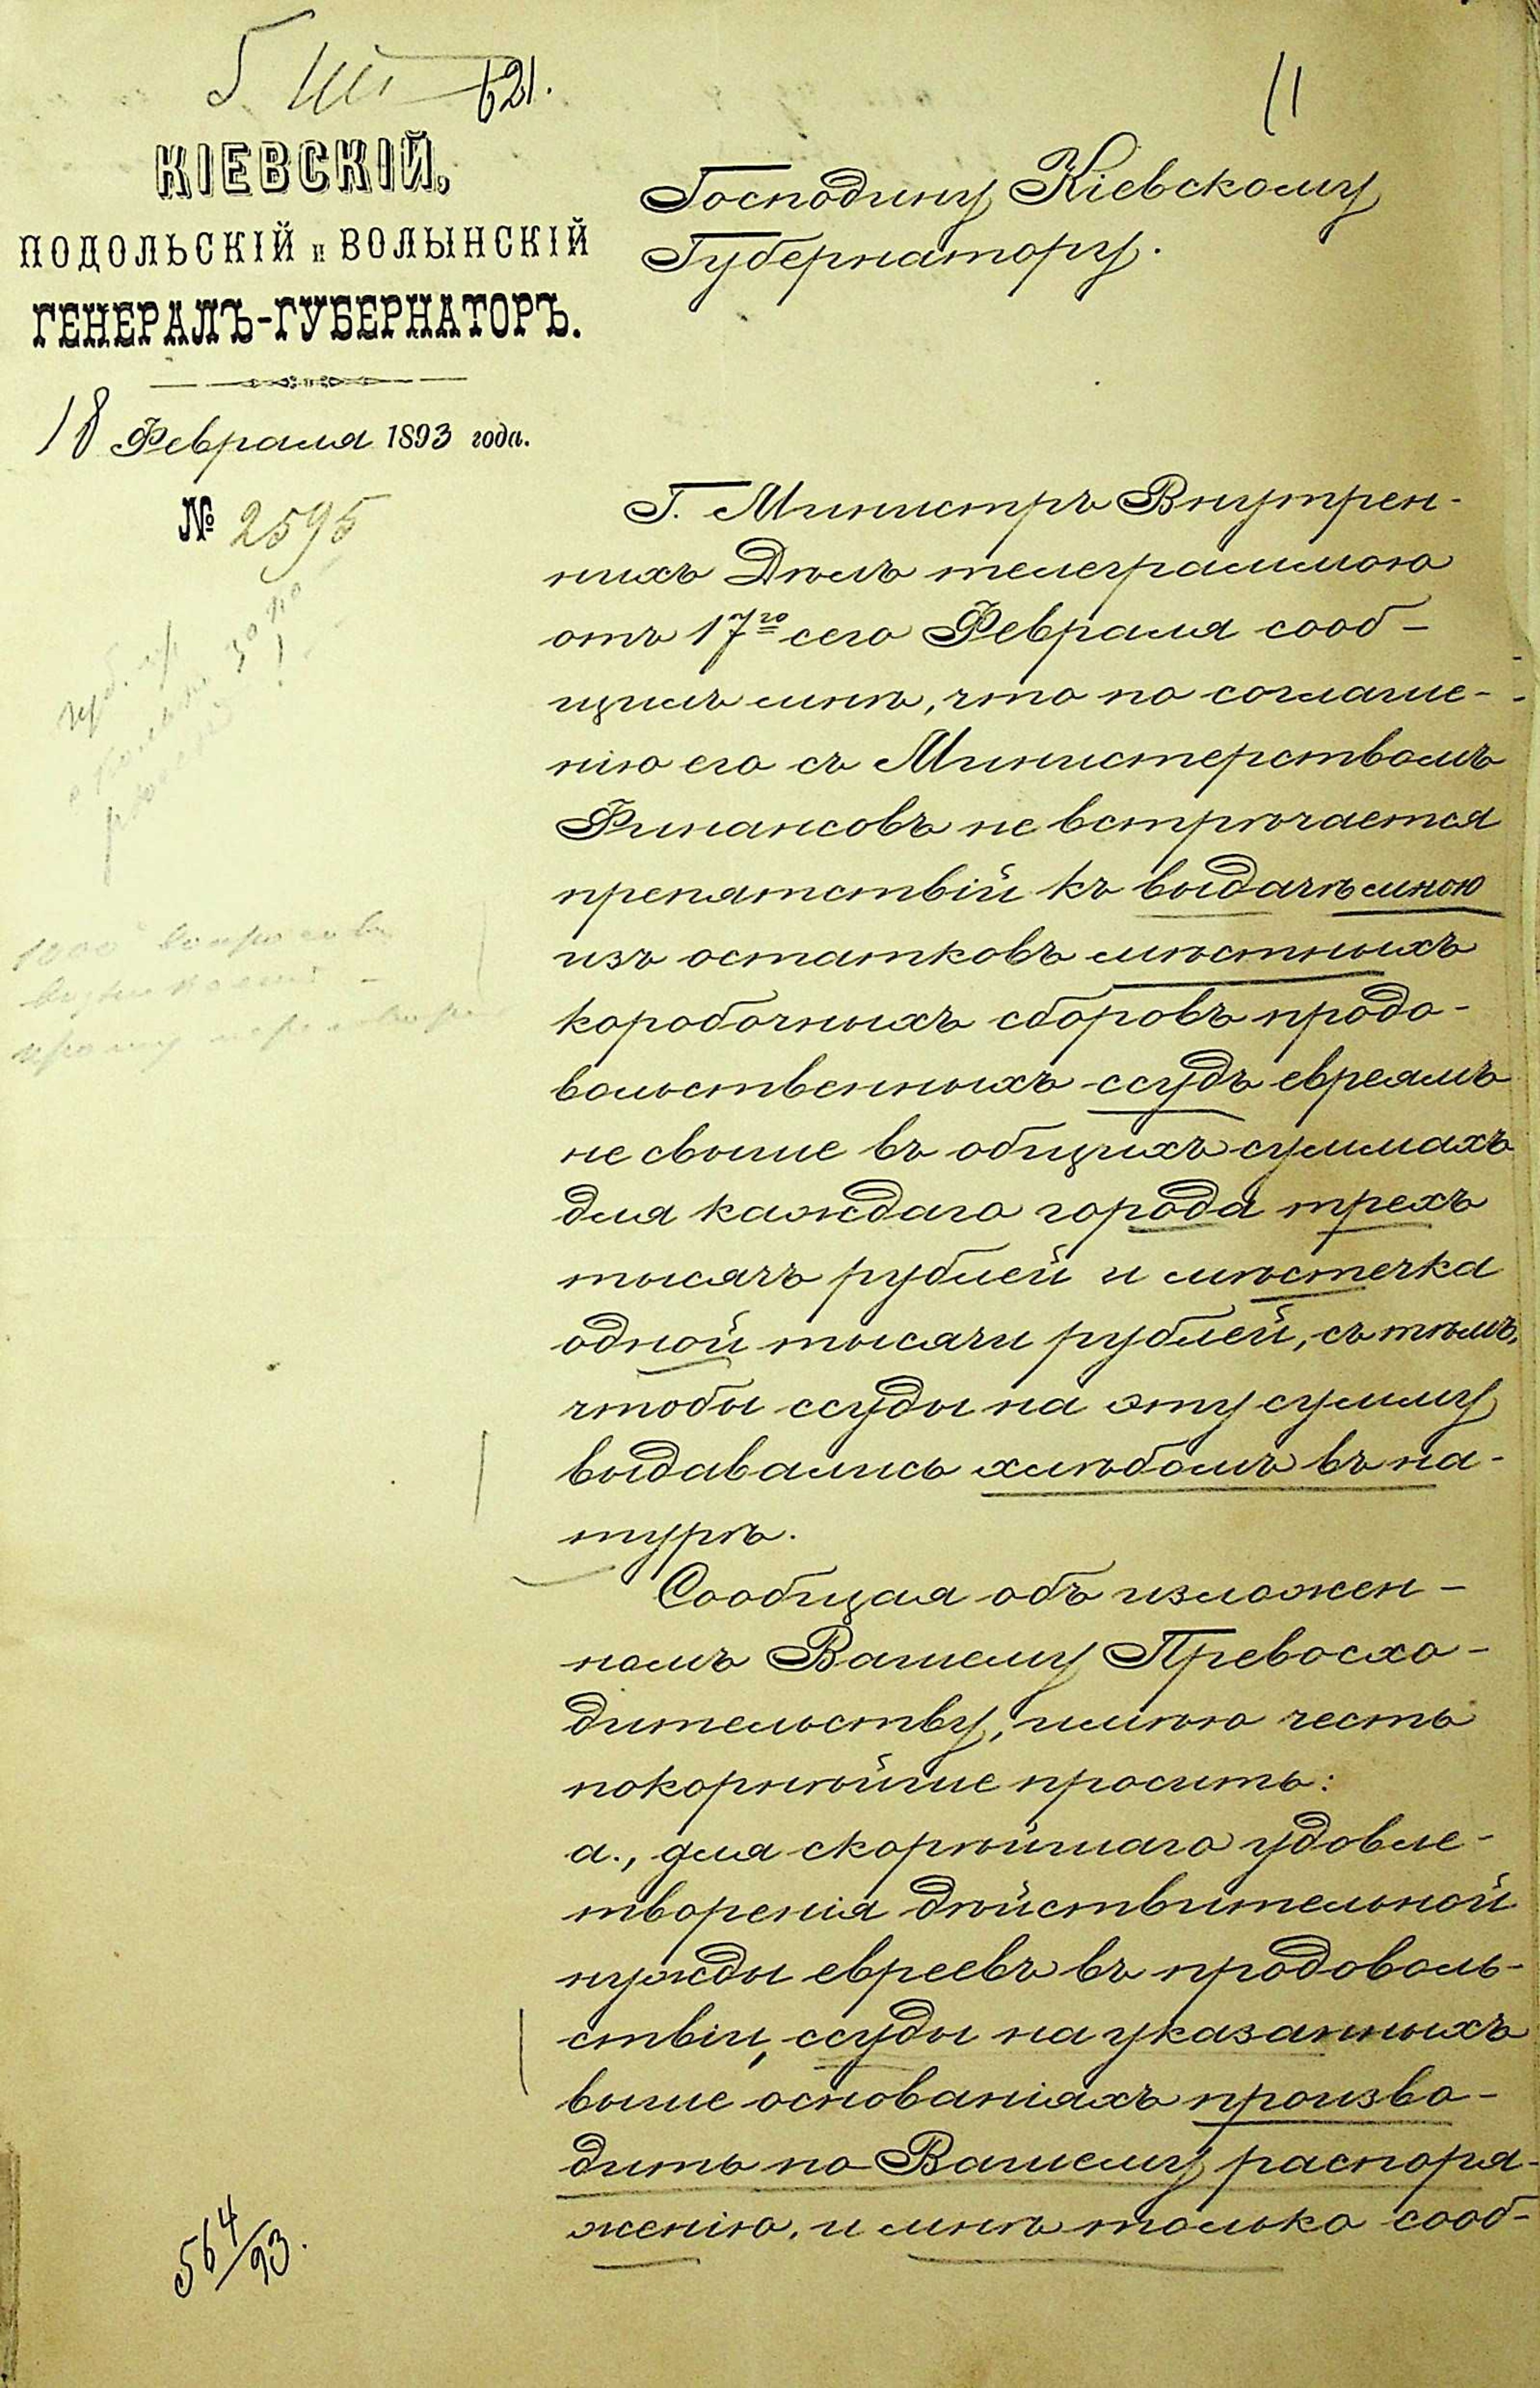 621.
11
КІЕВСКІЙ,
ПОДОЛЬСКІЙ и ВОЛЫНСКІЙ
ГЕНЕРАЛЪ-ГУБЕРНАТОРЪ.
18 Февраля 1893 года.
№ 2595
Господину Кіевскому
Губернатору.
Г. Министръ Внутрен-
нихъ Дѣлъ телеграммою
отъ 17го сего Февраля сооб-
щилъ мнѣ, что по соглаше-
нію его съ Министерствомъ
Финансовъ не встрѣчается
препятствій къ выдачѣ мною
изъ остатковъ мѣстныхъ
коробочныхъ сборовъ продо-
вольственныхъ ссудъ евреямъ
не свыше въ общихъ суммахъ
для каждаго города трехъ
тысячъ рублей и мѣстечка
одной тысячи рублей, съ тѣмъ,
чтобы ссуды на эту сумму
выдавались хлѣбомъ въ на-
турѣ.
Сообщая объ изложен-
номъ Вашему Превосхо-
дительству, имѣю честь
покорнѣйше просить:
а., для скорѣйшаго удовле-
творенія дѣйствительной
нужды евреевъ въ продоволь-
ствіи, ссуды на указанныхъ
выше основаніяхъ произво-
дить по Вашему распоря-
женію, и мнѣ только сооб-
564/93.